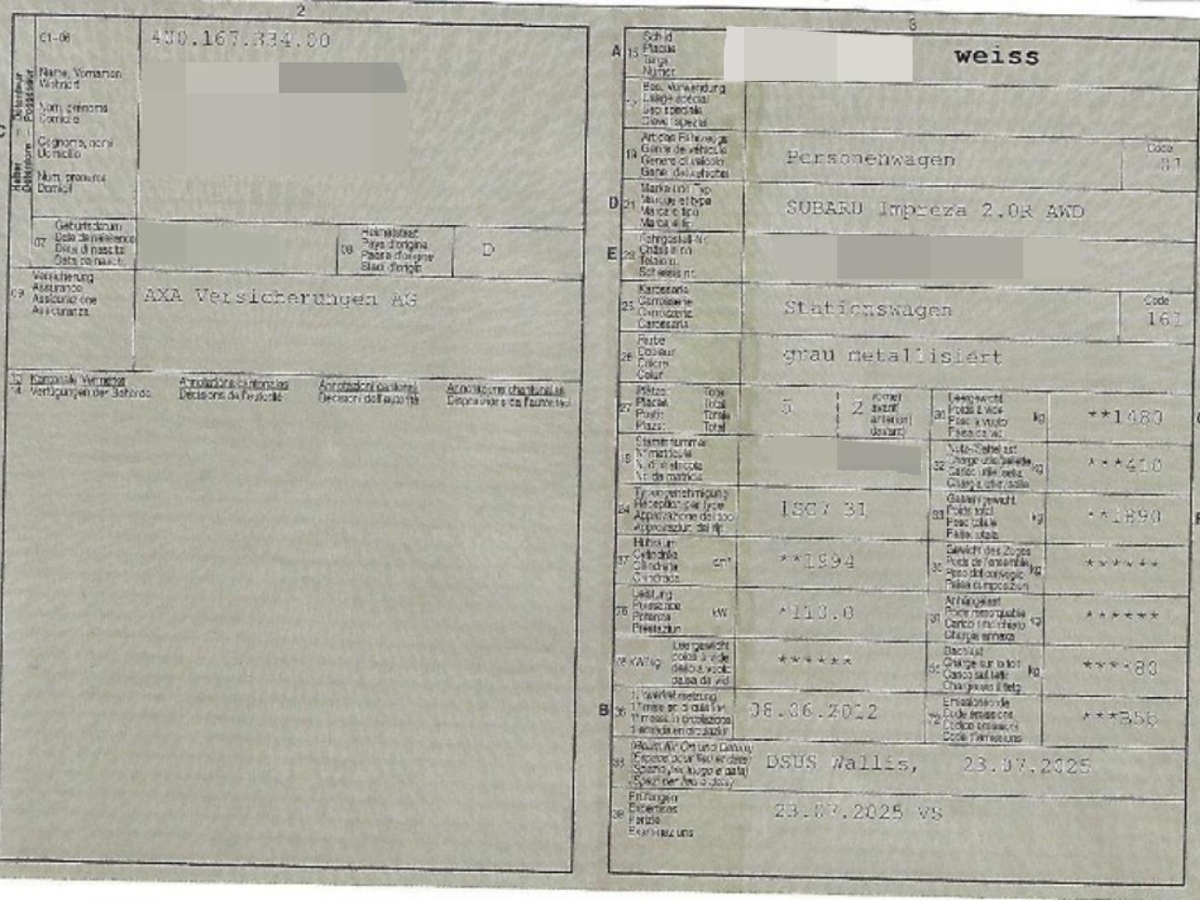 2
C1-06
400.167.334.00
Name, Vornamen
Wohnort
Nom, prénoms
Domicile
Cognome, nomi
Domicilio
Num, prenums
Domicil
C
07
Geburtsdatum
Date de naissance
Data di nascita
08
Heimatstaat
Pays d'origine
Paese d'origine
Stadi d'origin
D
09
Versicherung
Assurance
Assicurazione
Assicuranza
AXA Versicherungen AG
13
14
Kantonale Vermerke
Verfügungen der Behörde
Annotations cantonales
Décisions de l'autorité
Annotazioni cantonali
Decisioni dell'autorità
Annotaziuns chantunalas
Disposiziuns da l'autoritad
3
A
15
Schild
Plaque
Targa
Numer
weiss
19
Art des Fahrzeugs
Genre de véhicule
Genere di veicolo
Personenwagen
Code
01
D
21
Marke und Typ
Marque et type
Marca e tipo
Marca e tip
SUBARU Impreza 2.0R AWD
E
23
Fahrgestell-Nr.
Châssis no
Telaio n.
Schassis nr.
25
Karosserie
Carrosserie
Carrozzeria
Carossaria
Stationswagen
Code
161
26
Farbe
Couleur
Colore
Colur
grau metallisiert
27
Plätze: Total
Places: Total
Posti: Totale
Plazs: Total
5
2
vorne/
avant/
anteriori/
davant)
30
Leergewicht
Poids à vide
Peso a vuoto
kg
**1480
18
Stammnummer
N° matricule
N. di matricola
32
kg
***410
24
Typengenehmigung
Réception par type
Approvazione del tipo
33
Gesamtgewicht
Poids total
Peso totale
Paisa totala
kg
**1890
37
Hubraum
Cylindrée
Cilindrata
Cilindrada
cm³
**1994
35
Gewicht des Zuges
Poids de l'ensemble
Peso del convoglio
kg
******
76
Leistung
Puissance
Potenza
Prestaziun
kW
*110.0
31
Anhängelast
Poids remorquable
Carico rimorchiato
Chargia annexa
kg
******
78
kW/kg
Leergewicht
poids à vide
peso a vuoto
paisa da vid
******
55
Dachlast
Charge sur le toit
Carico sul tetto
kg
****80
B
36
1. Inverkehrsetzung
1re mise en circulation
1a messa in circolazione
08.06.2012
72
Emissionscode
Code émissions
Codice emissioni
Code d'emissiuns
***B5b
38
(Raum für Ort und Datum)
(Espace pour lieu et date)
(Spazio per luogo e data)
DSUS Wallis, 23.07.2025
39
Prüfungen
Expertises
Perizie
Examinaziuns
23.07.2025 VS